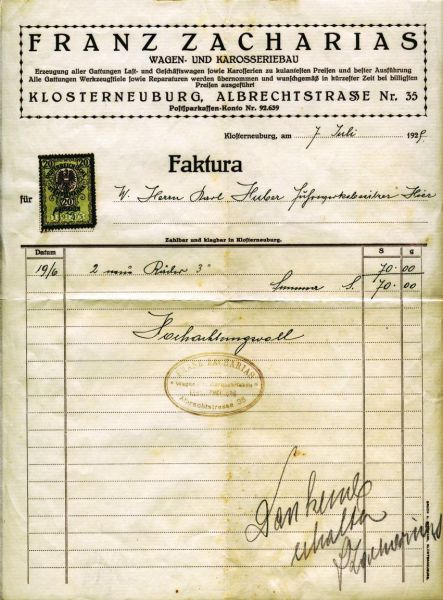 FRANZ ZACHARIAS
WAGEN- UND KAROSSERIEBAU
Erzeugung aller Gattungen Last- und Geschäftswagen sowie Karosserien zu kulantesten Preisen und bester Ausführung
Alle Gattungen Werkzeugstiele sowie Reparaturen werden übernommen und wunschgemäß in kürzester Zeit bei billigsten
Preisen ausgeführt
KLOSTERNEUBURG, ALBRECHTSTRAßE Nr. 35
Postsparkassen-Konto Nr. 92.639
Klosterneuburg, am 7 Juli 1929
Faktura
20 20
20
für W. Herrn Karl Huber Fuhrwerksbesitzer Hier
Zahlbar und klagbar in Klosterneuburg.
Datum S g
19/6 2 neue Räder 3" 70.00
Summa S. 70.00
Hochachtungsvoll
FRANZ ZACHARIAS
Albrechtstrasse 35
Dankend
erhalten
FZacharias